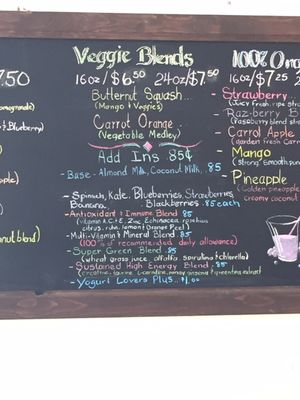 Veggie Blends
16oz/$6.50 24oz/$7.50
Butternut Squash...
(Mango & Veggies)
Carrot Orange..
(Vegetable Medley)
Add Ins 85¢
-Base - Almond Milk, Coconut Milk, .85
- Spinach, Kale, Blueberries, Strawberries
Banana, Blackberries .85 each
- Antioxidant & Immune Blend .85
(vitamin C & E, Zinc, Echinacea, rosehips
citrus, rutin, lemon & Orange Peel)
- Multi-Vitamin & Mineral Blend .85
(100% of recommended daily allowance)
- Super Green Blend .85
(wheat grass juice, alfalfa, spirulina & chlorella)
- Sustained High Energy Blend .85
- Yogurt Lovers Plus.. $1.00
7.50
& Blueberry)
nut blend)
100% Ora
16oz/$7.25 2
- Strawberry..
(Juicy fresh ripe
- Raz-berry
(Raspberry blend
- Carrot Apple
(garden fresh Carr
- Mango
(Strong
- Pineapple
(Golden pineapple
creamy coconut